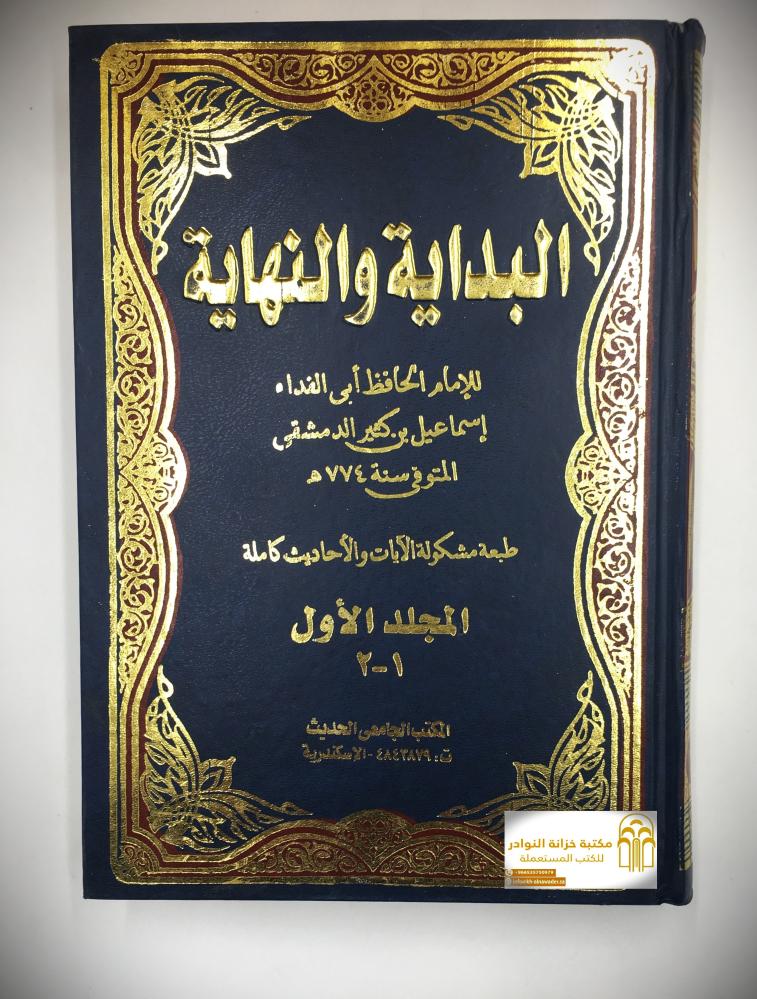 البداية والنهاية
للإمام الحافظ أبى الفداء
إسماعيل بن كثير الدمشقي
المتوفى سنة ٧٧٤ هـ
طبعة مشكولة الآيات والأحاديث كاملة
المجلد الأول
١-٢
المكتب الجامعى الحديث
ت: ٤٨٤٣٨٧٩ - الإسكندرية
مكتبة خزانة النوادر
للكتب المستعملة
+966535750979